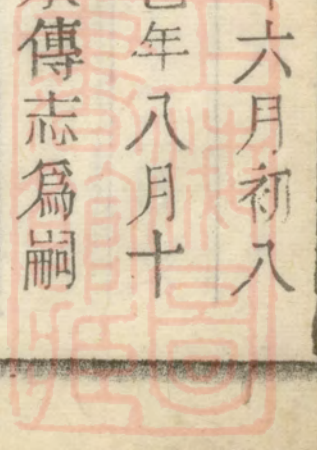 六月初八
年八月十
傳志爲嗣